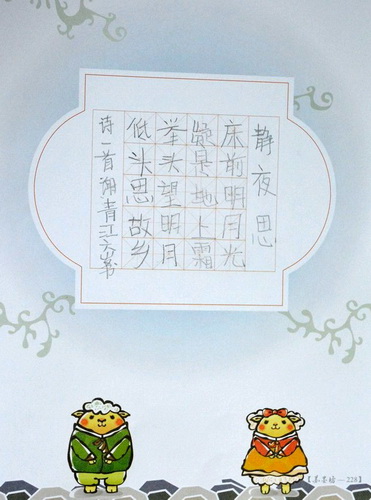 静夜思
床前明月光
疑是地上霜
举头望明月
低头思故乡
诗一首 青江六岁书
【美墨坊—228】